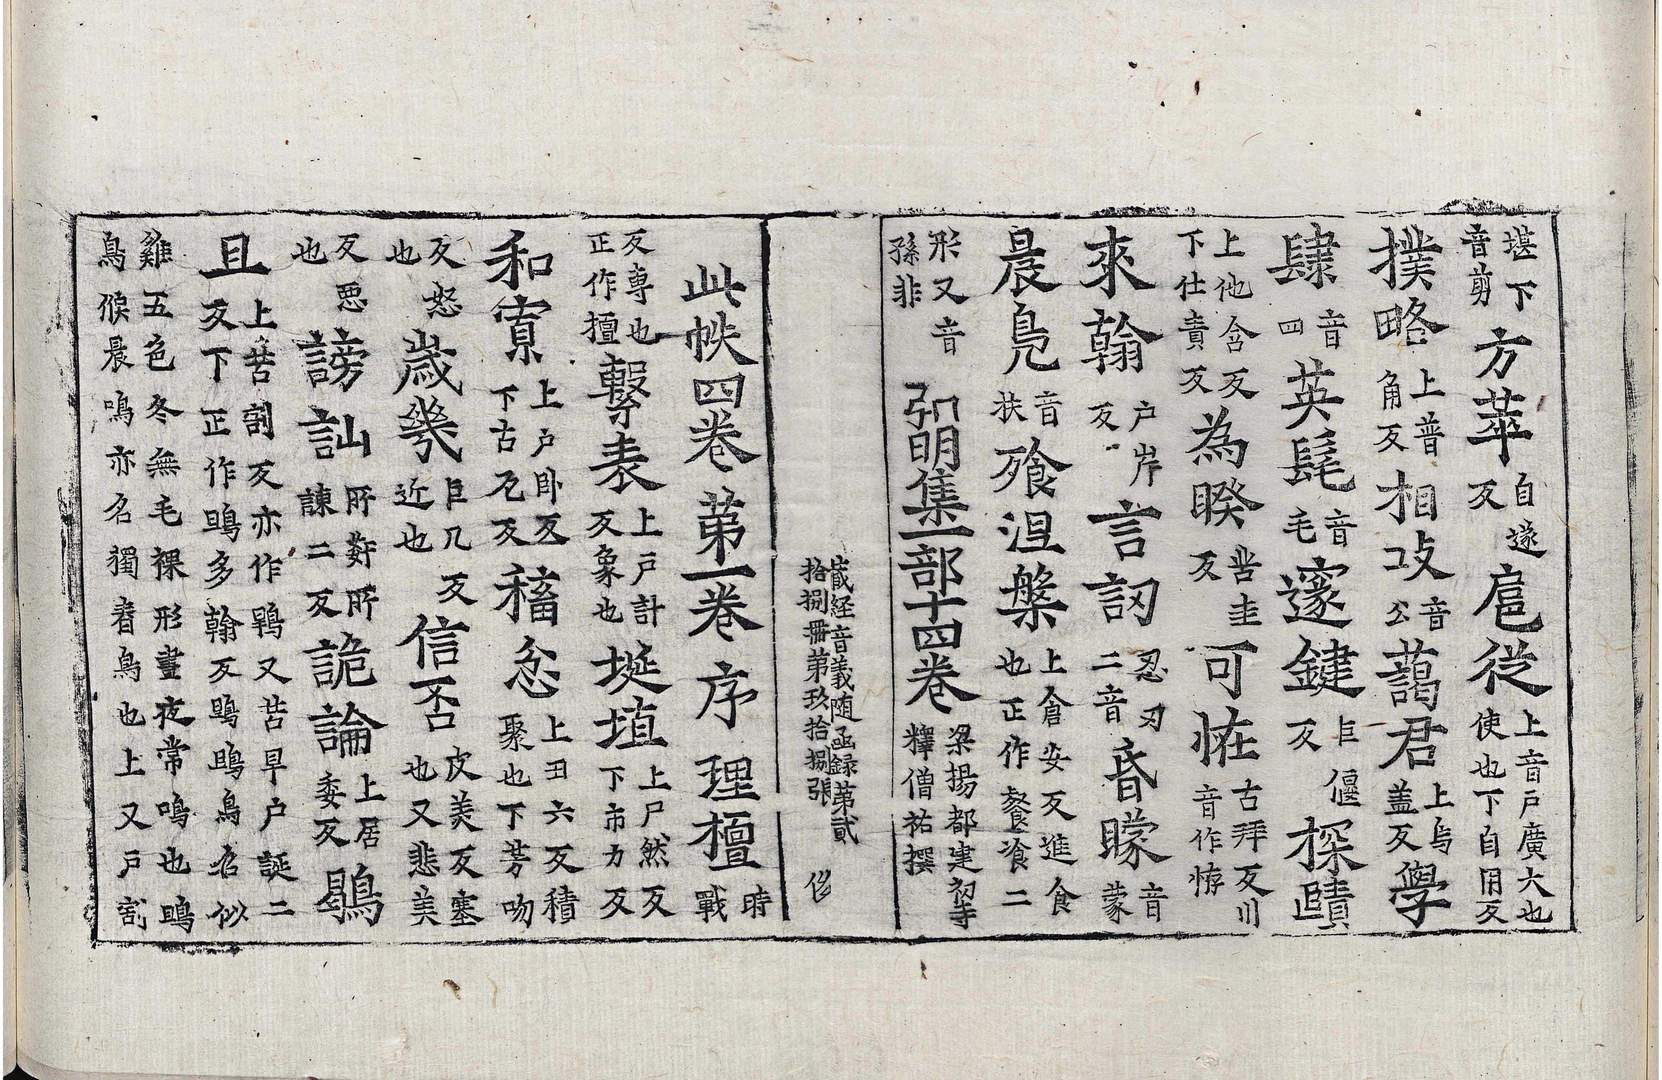 堪下音剪方萃自遂反扈從上音戶廣大也使也下自用反
撲略上普角反相攻音公藹君上烏盖反學
肆音四英髦音毛邃鍵巨偃反探賾
上他含反下仕責反為睽苦圭反可恠古拜反川音作悖
來翰户岸反言訒忍刃二音昏矇音蒙
晨鳧音扶飡涅槃上倉安反進食也正作餐湌二
形又音孫非弘明集一部十四卷梁揚都建初寺釋僧祐撰
藏経音義随函録第貳拾捌冊第玖拾捌張
此帙四卷第一卷序理檀時戰
反専也正作擅繫表上戸計反象也埏埴上尸然反下市力反
和寡上戶卧反下古瓦反稸忿上丑六反積聚也下芳吻
反怒也歲幾巨几反近也信否皮美反塞也又悲美
反惡也謗訕所姧所諫二反詭論上居委反鶡
旦上苦割反亦作鶷又苦旱户誕二反下正作鴠多翰反鴠鴠鳥名似
雞五色冬無毛裸形晝夜常鳴也鴠鳥候晨鳴亦名獨舂鳥也上又戶割